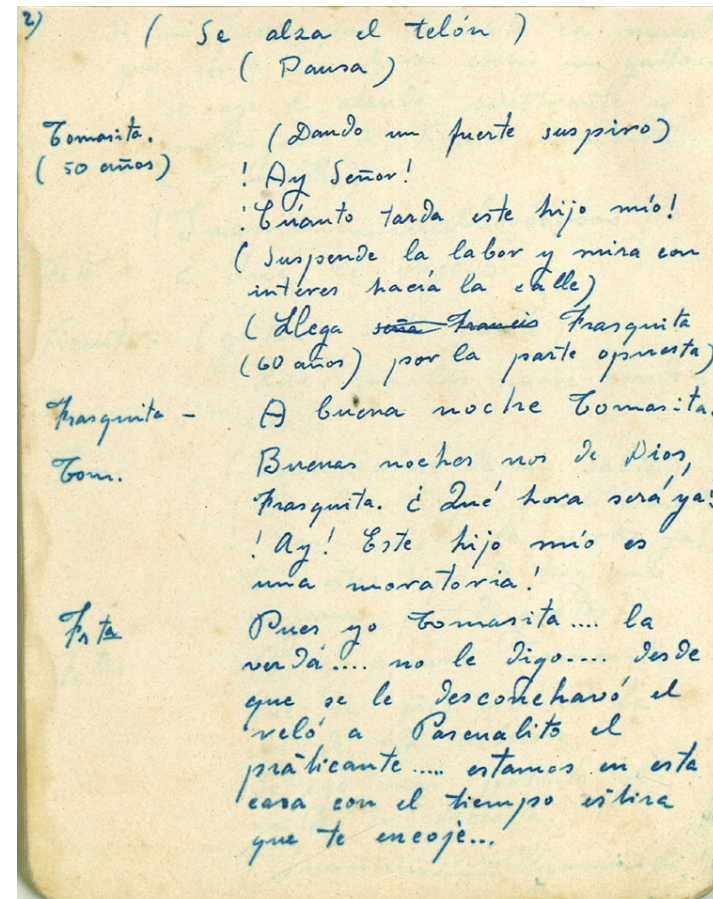 2)
( Se alza el telón )
( Pausa )
Tomasita. (Dando un fuerte suspiro)
( 50 años) ! Ay Señor!
! Cuánto tarda este hijo mío!
( Suspende la labor y mira con
interes hacia la calle)
( Llega seña Francis Frasquita
(60 años) por la parte opuesta)
Frasquita - A buena noche Tomasita.
Tom. Buenas noches nos de Dios,
Frasquita. ¿ Qué hora será ya?
! Ay! Este hijo mío es
una moratoria!
Frta Pues yo Tomasita .... la
verdá .... no le digo .... desde
que se le desconchavó el
veló a Pascualito el
práticante ..... estamos en esta
casa con el tiempo estira
que te encoje...